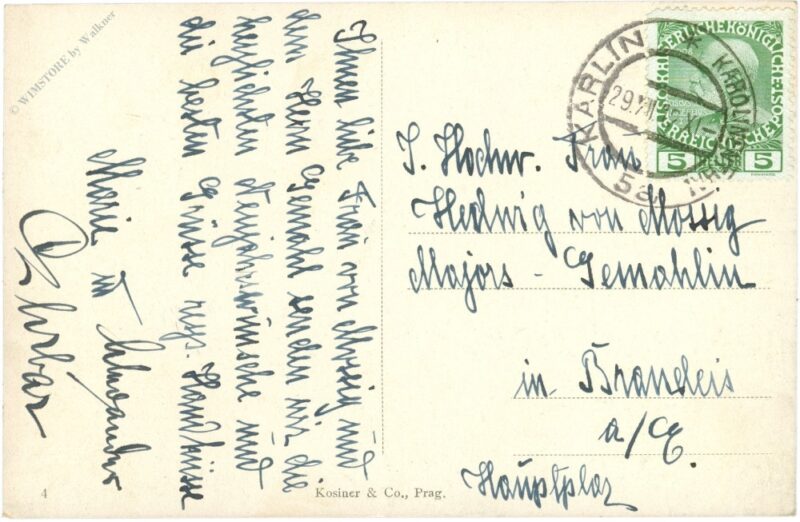 Ihnen liebe Frau von Mossig und
dem Herrn Gemahl senden wir die
herzlichsten Neujahrswünsche und
die besten Grüsse resp. Handküsse
Marie u
S. Hochw. Frau
Hedwig von Mossig
Majors - Gemahlin
in Brandeis
a/E.
Hauptplaz
KARLÍN * KAROLINENTHAL
29.XII
5a
KAISERLICHE KÖNIGLICHE
ÖSTERREICHISCHE
5 5
Kosiner & Co., Prag.
4
© WIMSTORE by Walkner